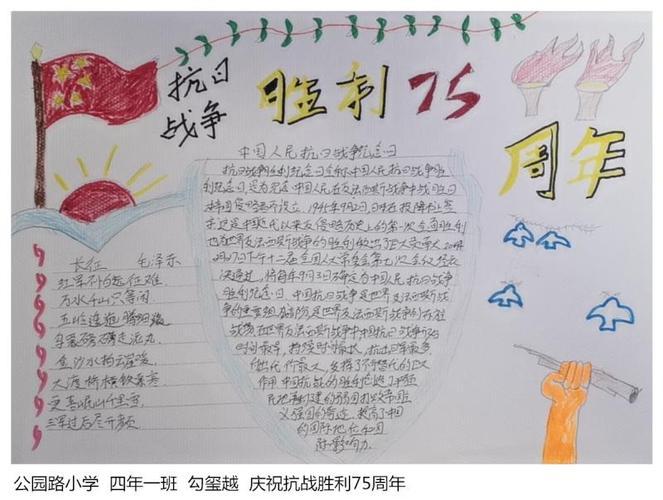 抗日
战争
胜利75
周年
中国人民抗日战争纪念日
抗日战争胜利纪念日全称中国人民抗日战争胜
利纪念日,是为纪念中国人民在反法西斯战争中战胜日
本帝国侵略者而设立,1945年9月2日,日本
近代以来反侵略历史上的第一次全面胜利
也为世界反法西斯战争的胜利做出了巨大贡献 2014
月27日下午十二届全国人大常委会第七次会议经表
决通过,将每年9月3日确定为中国人民抗日战争
胜利纪念日,中国抗日战争是世界反法西斯战
争的重要组成部分是世界反法西斯战争的东方
战场在世界反法西斯战争中中国抗日战争开始
时间最早,持续时间最长,抗击日军最多
付出代价最大,发挥了不可替代的巨大
作用 中国抗战的胜利
义强国的奇迹,提高了中国
的国际地位和国
际影响力.
长征 毛泽东
红军不怕远征难.
万水千山只等闲
五岭逶迤腾细浪
乌蒙磅礴走泥丸.
金沙水拍云崖暖.
大渡桥横铁索寒
更喜岷山千里雪.
三军过后尽开颜.
公园路小学 四年一班 勾玺越 庆祝抗战胜利75周年